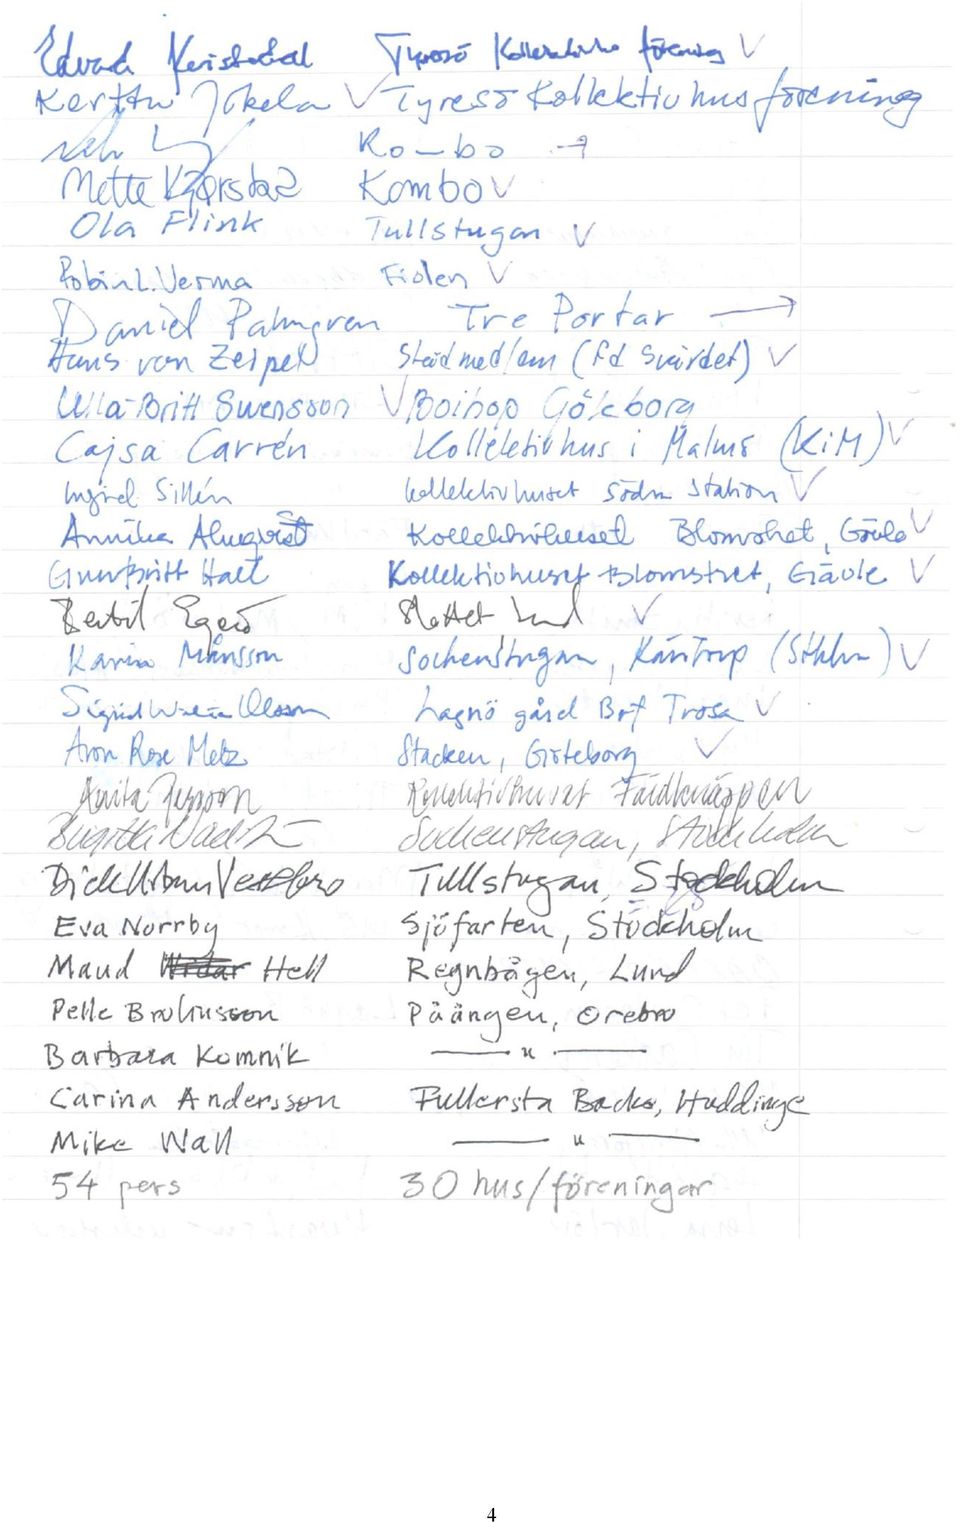 Edvard Tyresö Kollektivhus förening V
Kerttu Jokela V Tyresö Kollektivhusförening
Ko–bo →
Mette Kjørstad Kombo V
Ola Flink Tullstugan V
Robin L. Verma Fiolen V
Daniel Palmgren Tre Portar →
Hans von Zeipel Stödmedlem (fd Svärdet) V
Ulla-Britt Swensson V Boihop Göteborg
Cajsa Carrén Kollektivhus i Malmö (KiM) V
Ingrid Sillén kollektivhuset södra station V
Annika Almqvist Kollektivhuset Blomstret, Gävle V
GunBritt Hall Kollektivhuset Blomstret, Gävle V
Bertil Egerö Slottet Lund V
Karin Månsson Sockenstugan, Kärrtorp (Sthlm) V
Sigrid Olsson Lagnö gård Brf Trosa V
Aron Rose Metz Stacken, Göteborg V
Anita Persson Kollektivhuset Färdknäppen
Birgitta Sockenstugan, Stockholm
Dick Urban Vestbro Tullstugan, Stockholm
Eva Norrby Sjöfarten, Stockholm
Maud Hell Regnbågen, Lund
Pelle Brolinsson Påängen, Orebro
Barbara Komnik —— " ——
Carina Andersson Fullersta Backe, Huddinge
Mike Wall —— " ——
54 pers 30 hus/föreningar
4